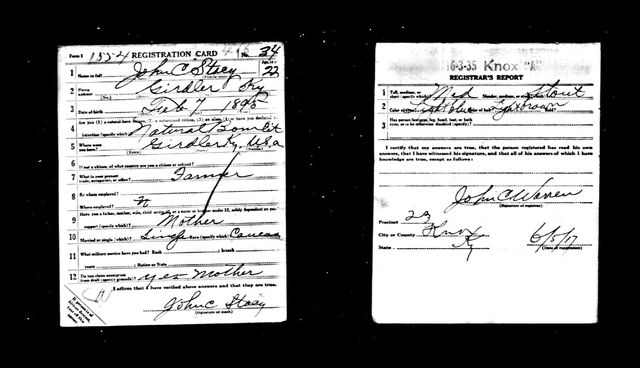 Form 1 1554 REGISTRATION CARD No. 34
1 Name in full John C Stacy Age, in yrs. 22
2 Home address Girdler Ky
3 Date of birth Feb 7 1895
4 Are you (1) a natural-born citizen, (2) a naturalized citizen, (3) an alien, (4) or have you declared your intention (specify which)? Natural Born Cit
5 Where were you born? Girdler Ky. U.S.a
6 If not a citizen, of what country are you a citizen or subject?
7 What is your present trade, occupation, or office? Farmer
8 By whom employed?
Where employed?
9 Have you a father, mother, wife, child under 12, or a sister or brother under 12, solely dependent on you for support (specify which)? Mother
10 Married or single (which)? Single Race (specify which)? Caucasian
11 What military service have you had? Rank ; branch
years ; Nation or State
12 Do you claim exemption from draft (specify grounds)? yes Mother
I affirm that I have verified above answers and that they are true.
John C Stacy
(Signature or mark)
16-3-35 Knox "A"
REGISTRAR'S REPORT
1 Tall, medium, or short (specify which)? Med Slender, medium, or stout (which)? Stout
2 Color of eyes? Light blue Color of hair? Light brown
3 Has person lost arm, leg, hand, foot, or both eyes, or is he otherwise disabled (specify)?
I certify that my answers are true, that the person registered has read his own answers, that I have witnessed his signature, and that all of his answers of which I have knowledge are true, except as follows:
John C Warren
(Signature of registrar)
Precinct 23
City or County Knox
State Ky 6/5/17
(Date of registration)